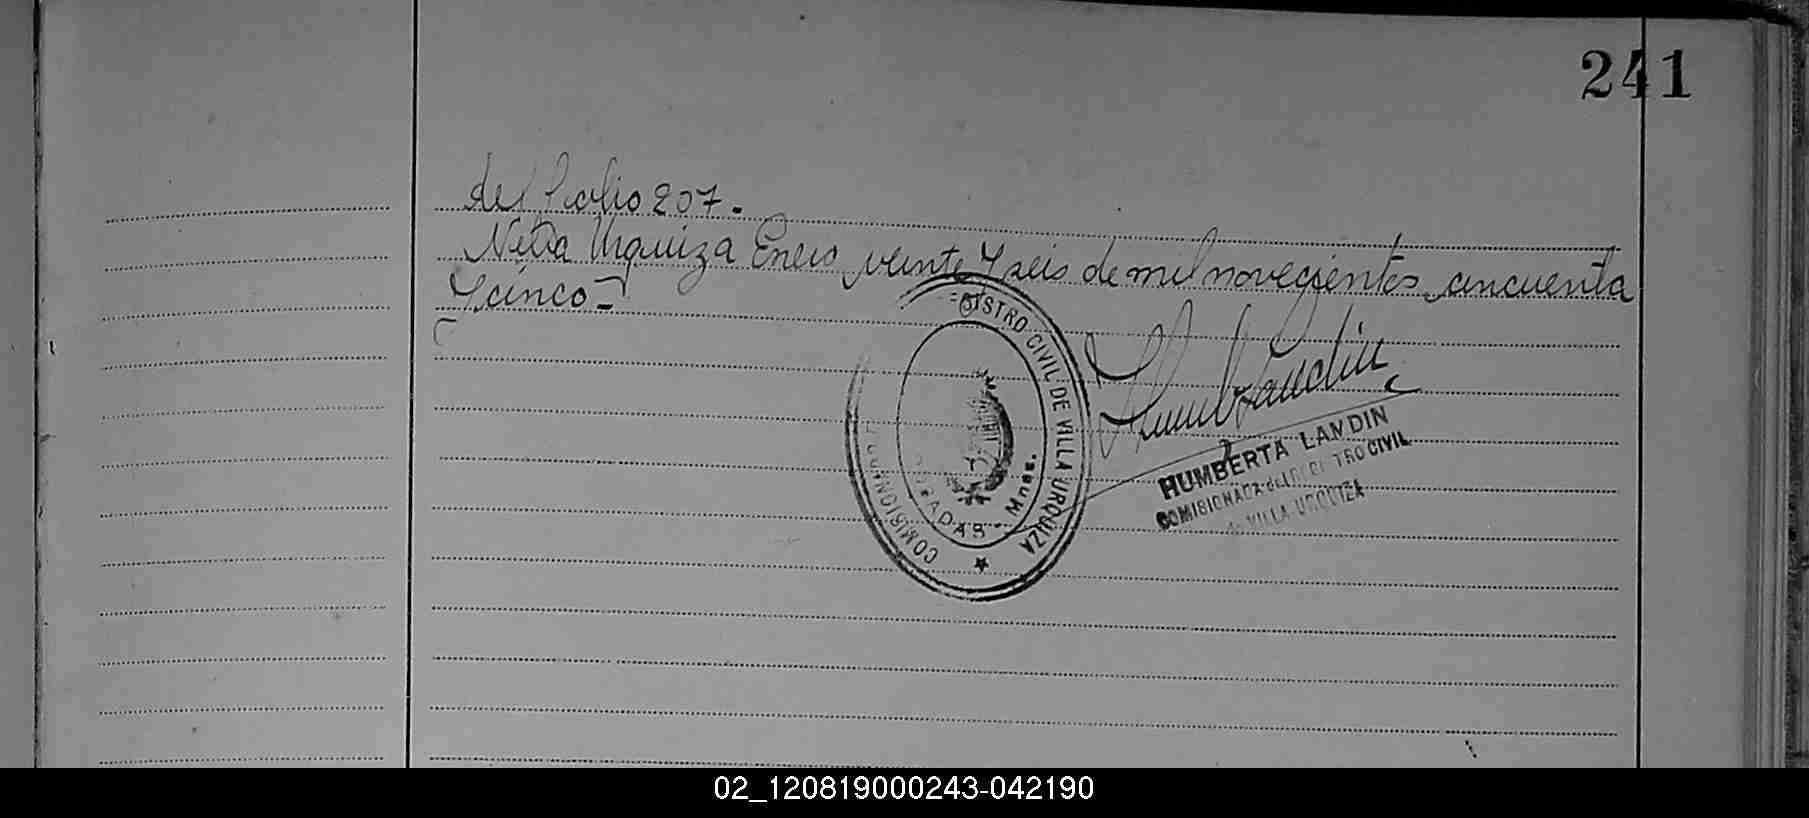 241
del folio 207.-
Villa Urquiza Enero veinte y seis de mil novecientos cincuenta
y cinco-
REGISTRO CIVIL DE VILLA URQUIZA
COMISIONADO
POSADAS - Mnes.
Humb Landin
HUMBERTA LANDIN
COMISIONADA del REGISTRO CIVIL
de VILLA URQUIZA
02_120819000243-042190